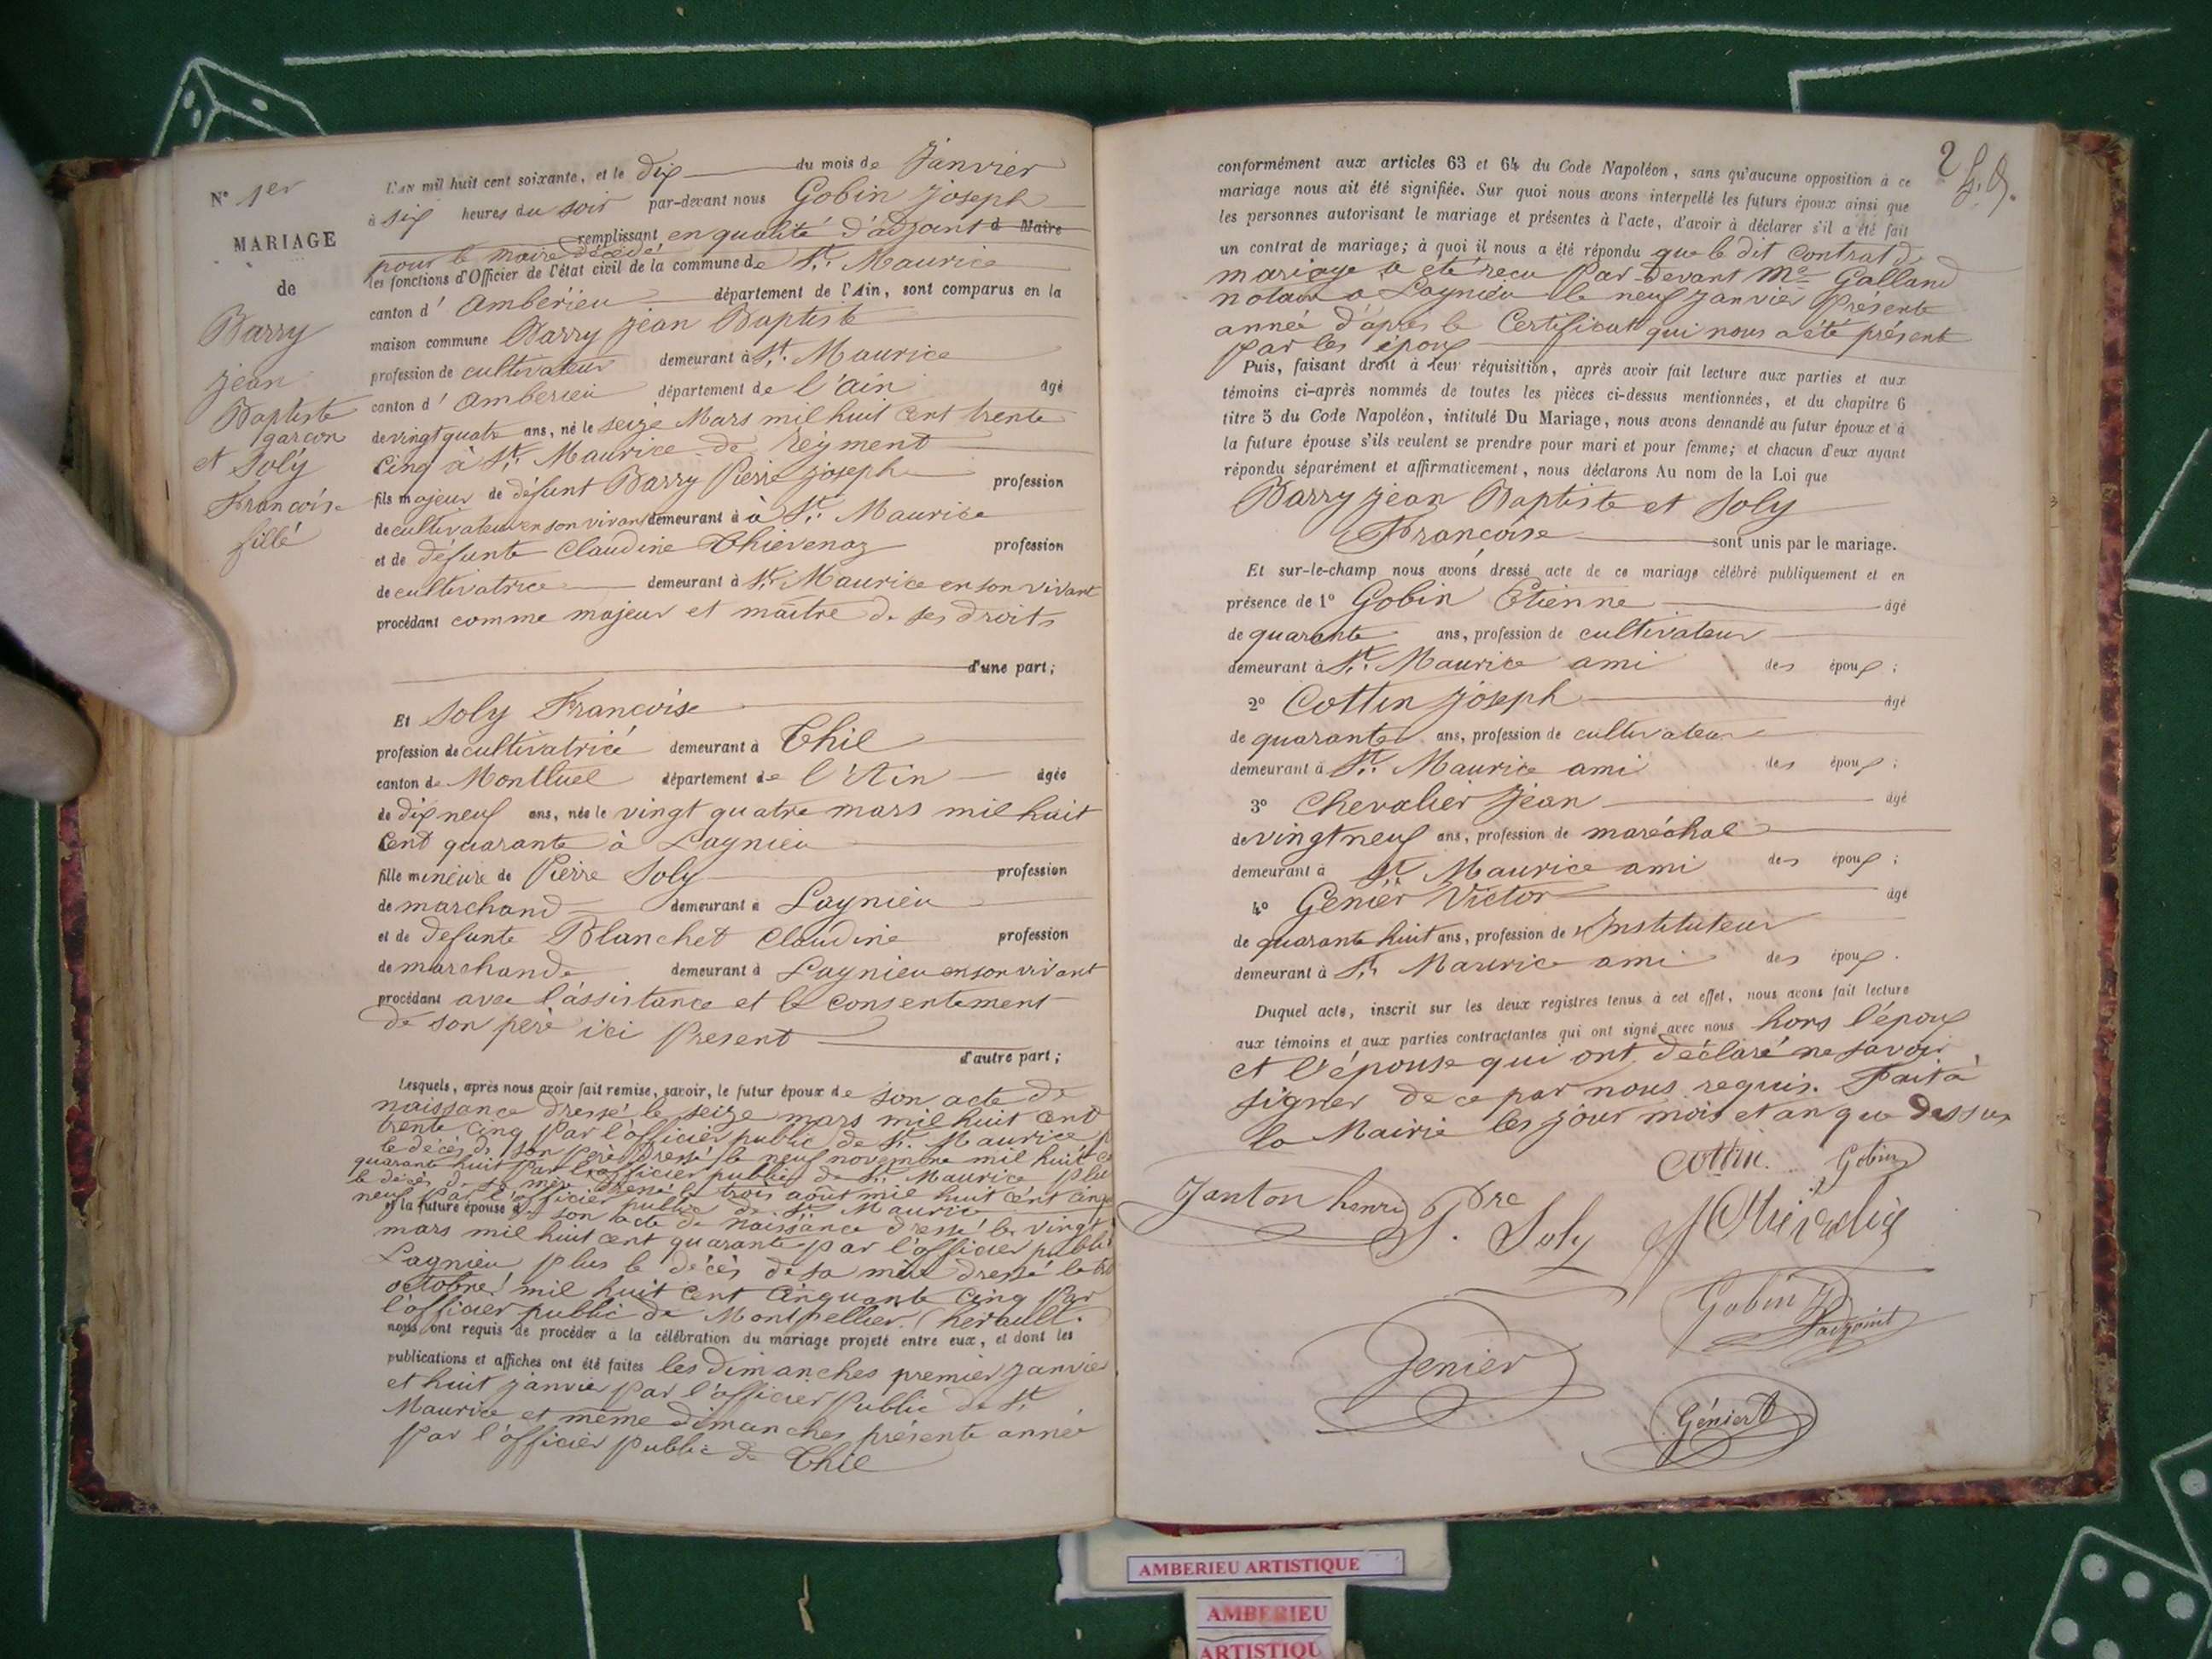 N° 1er
MARIAGE
de
Barry
jean
Baptiste
garcon
et Soly
Francoise
fille
L'AN mil huit cent soixante, et le dix du mois de Janvier
à six heures du soir par-devant nous Gobin Joseph
remplissant en qualité d'adjoint d Maire
pour le maire décédé
les fonctions d'Officier de l'état civil de la commune de St. Maurice
canton d' Amberieu département de l'Ain, sont comparus en la
maison commune Barry jean Baptiste
profession de cultivateur demeurant à St. Maurice
canton d' Amberieu département de l'ain âgé
de vingt quatre ans, né le seize Mars mil huit cent trente
Cinq à St. Maurice de reyment
fils majeur de défunt Barry Pierre joseph profession
de cultivateur en son vivant demeurant à à St. Maurice
et de défunte Claudine Thievenaz profession
de cultivatrice demeurant à St. Maurice en son vivant
procédant comme majeur et maître de ses droits
d'une part;
Et Soly Francoise
profession de cultivatrice demeurant à Thil
canton de Montluel département de l'Ain âgée
de dix neuf ans, née le vingt quatre mars mil huit
Cent quarante à Lagnieu
fille mineure de Pierre Soly profession
de marchand demeurant à Lagnieu
et de defunte Blanchet Claudine profession
de marchande demeurant à Lagnieu en son vivant
procédant avec l'assistance et le consentement
de son père ici Present
d'autre part;
Lesquels, après nous avoir fait remise, savoir, le futur époux de son acte de
naissance dressé le seize mars mil huit Cent
trente Cinq par l'officier public de St. Maurice
le décès de son père dressé le neuf novembre mil huit
quarante huit par l'officier public de St. Maurice plus
le décès de sa mère dressé le trois août mil huit cent
neuf par l'officier public de St. Maurice
et la future épouse d son acte de naissance dressé le vingt
mars mil huit cent quarante par l'officier public
Lagnieu plus le décès de sa mère dressé le
octobre mil huit cent Cinquante Cinq Par
l'officier public de Montpellier (herault.
nous ont requis de procéder à la célébration du mariage projeté entre eux, et dont les
publications et affiches ont été faites les dimanches premier janvier
et huit janvier par l'officier Public de St.
Maurice et même dimanches présente année
par l'officier public de Thil
2
conformément aux articles 63 et 64 du Code Napoléon, sans qu'aucune opposition à ce
mariage nous ait été signifiée. Sur quoi nous avons interpellé les futurs époux ainsi que
les personnes autorisant le mariage et présentes à l'acte, d'avoir à déclarer s'il a été fait
un contrat de mariage; à quoi il nous a été répondu que le dit contrat de
mariage a été recu Par-Devant Me Galland
notaire a Lagnieu le neuf janvier Présente
année d'après le Certificat qui nous a été présent
par les époux
Puis, faisant droit à leur réquisition, après avoir fait lecture aux parties et aux
témoins ci-après nommés de toutes les pièces ci-dessus mentionnées, et du chapitre 6
titre 5 du Code Napoléon, intitulé Du Mariage, nous avons demandé au futur époux et à
la future épouse s'ils veulent se prendre pour mari et pour femme; et chacun d'eux ayant
répondu séparément et affirmativement, nous déclarons Au nom de la Loi que
Barry jean Baptiste et Soly
Francoise sont unis par le mariage.
Et sur-le-champ nous avons dressé acte de ce mariage célébré publiquement et en
présence de 1° Gobin Etienne âgé
de quarante ans, profession de cultivateur
demeurant à St. Maurice ami des époux ;
2° Cottin Joseph âgé
de quarante ans, profession de cultivateur
demeurant à St. Maurice ami des époux ;
3° Chevalier Jean âgé
de vingt neuf ans, profession de maréchal
demeurant à St. Maurice ami des époux ;
4° Genier Victor âgé
de quarante huit ans, profession de Instituteur
demeurant à St. Maurice ami des époux.
Duquel acte, inscrit sur les deux registres tenus à cet effet, nous avons fait lecture
aux témoins et aux parties contractantes qui ont signé avec nous hors l'époux
et l'épouse qui ont déclaré ne savoir
signer de ce par nous requis. Fait à
la Mairie les jour mois et an que dessus
Cottin. Gobin
Janton henri Pre
P. Soly
Gobin J
adjoint
Genier
Génier
AMBERIEU ARTISTIQUE
AMBERIEU
ARTISTIQU